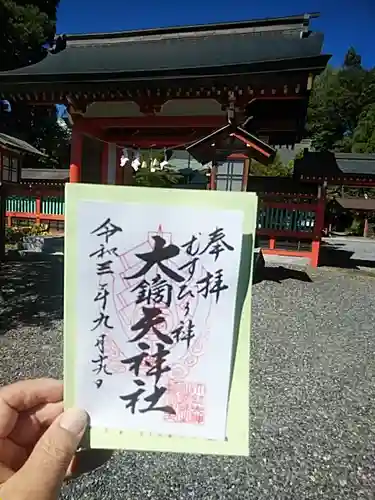 奉拝
むすび詣
大鏑矢神社
令和三年九月十九日